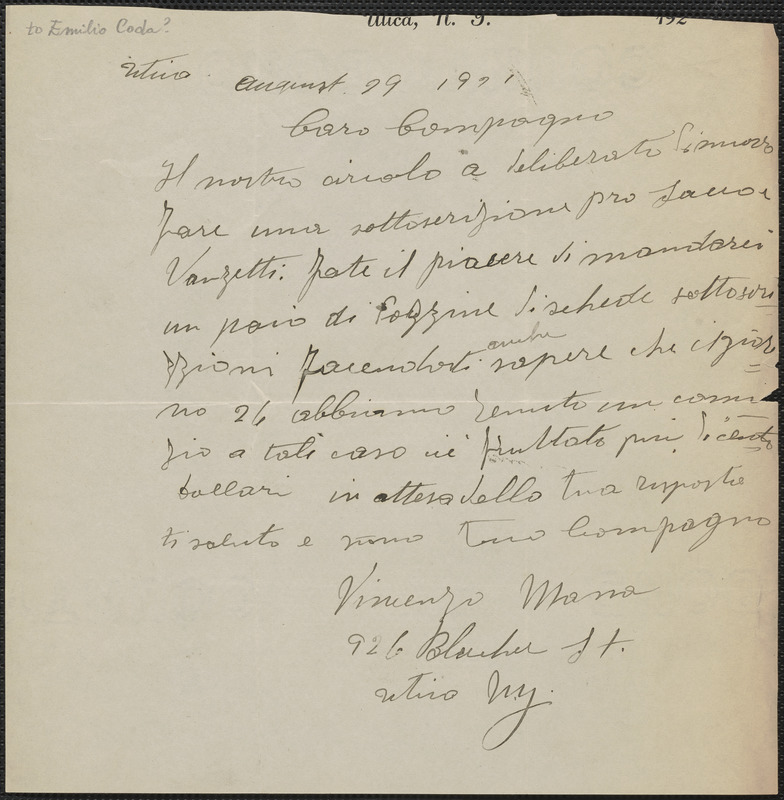 to Emilio Coda?
Utica, N. Y. 192
Utica august 29 1921
Caro Compagno
Il nostro circolo a deliberato di nuovo
fare una sottoscrizione pro Sacco e
Vanzetti. Fate il piacere di mandarci
un paio di dozzine di schede sottoscri
zzioni facendoti anche sapere che il gior
no 26 abbiamo tenuto un comi
zio a tale caso ci è fruttato più di cento
dollari in attesa della tua risposta
ti saluto e sono tuo Compagno
Vincenzo Massa
926 Blacher St.
utica N.y.